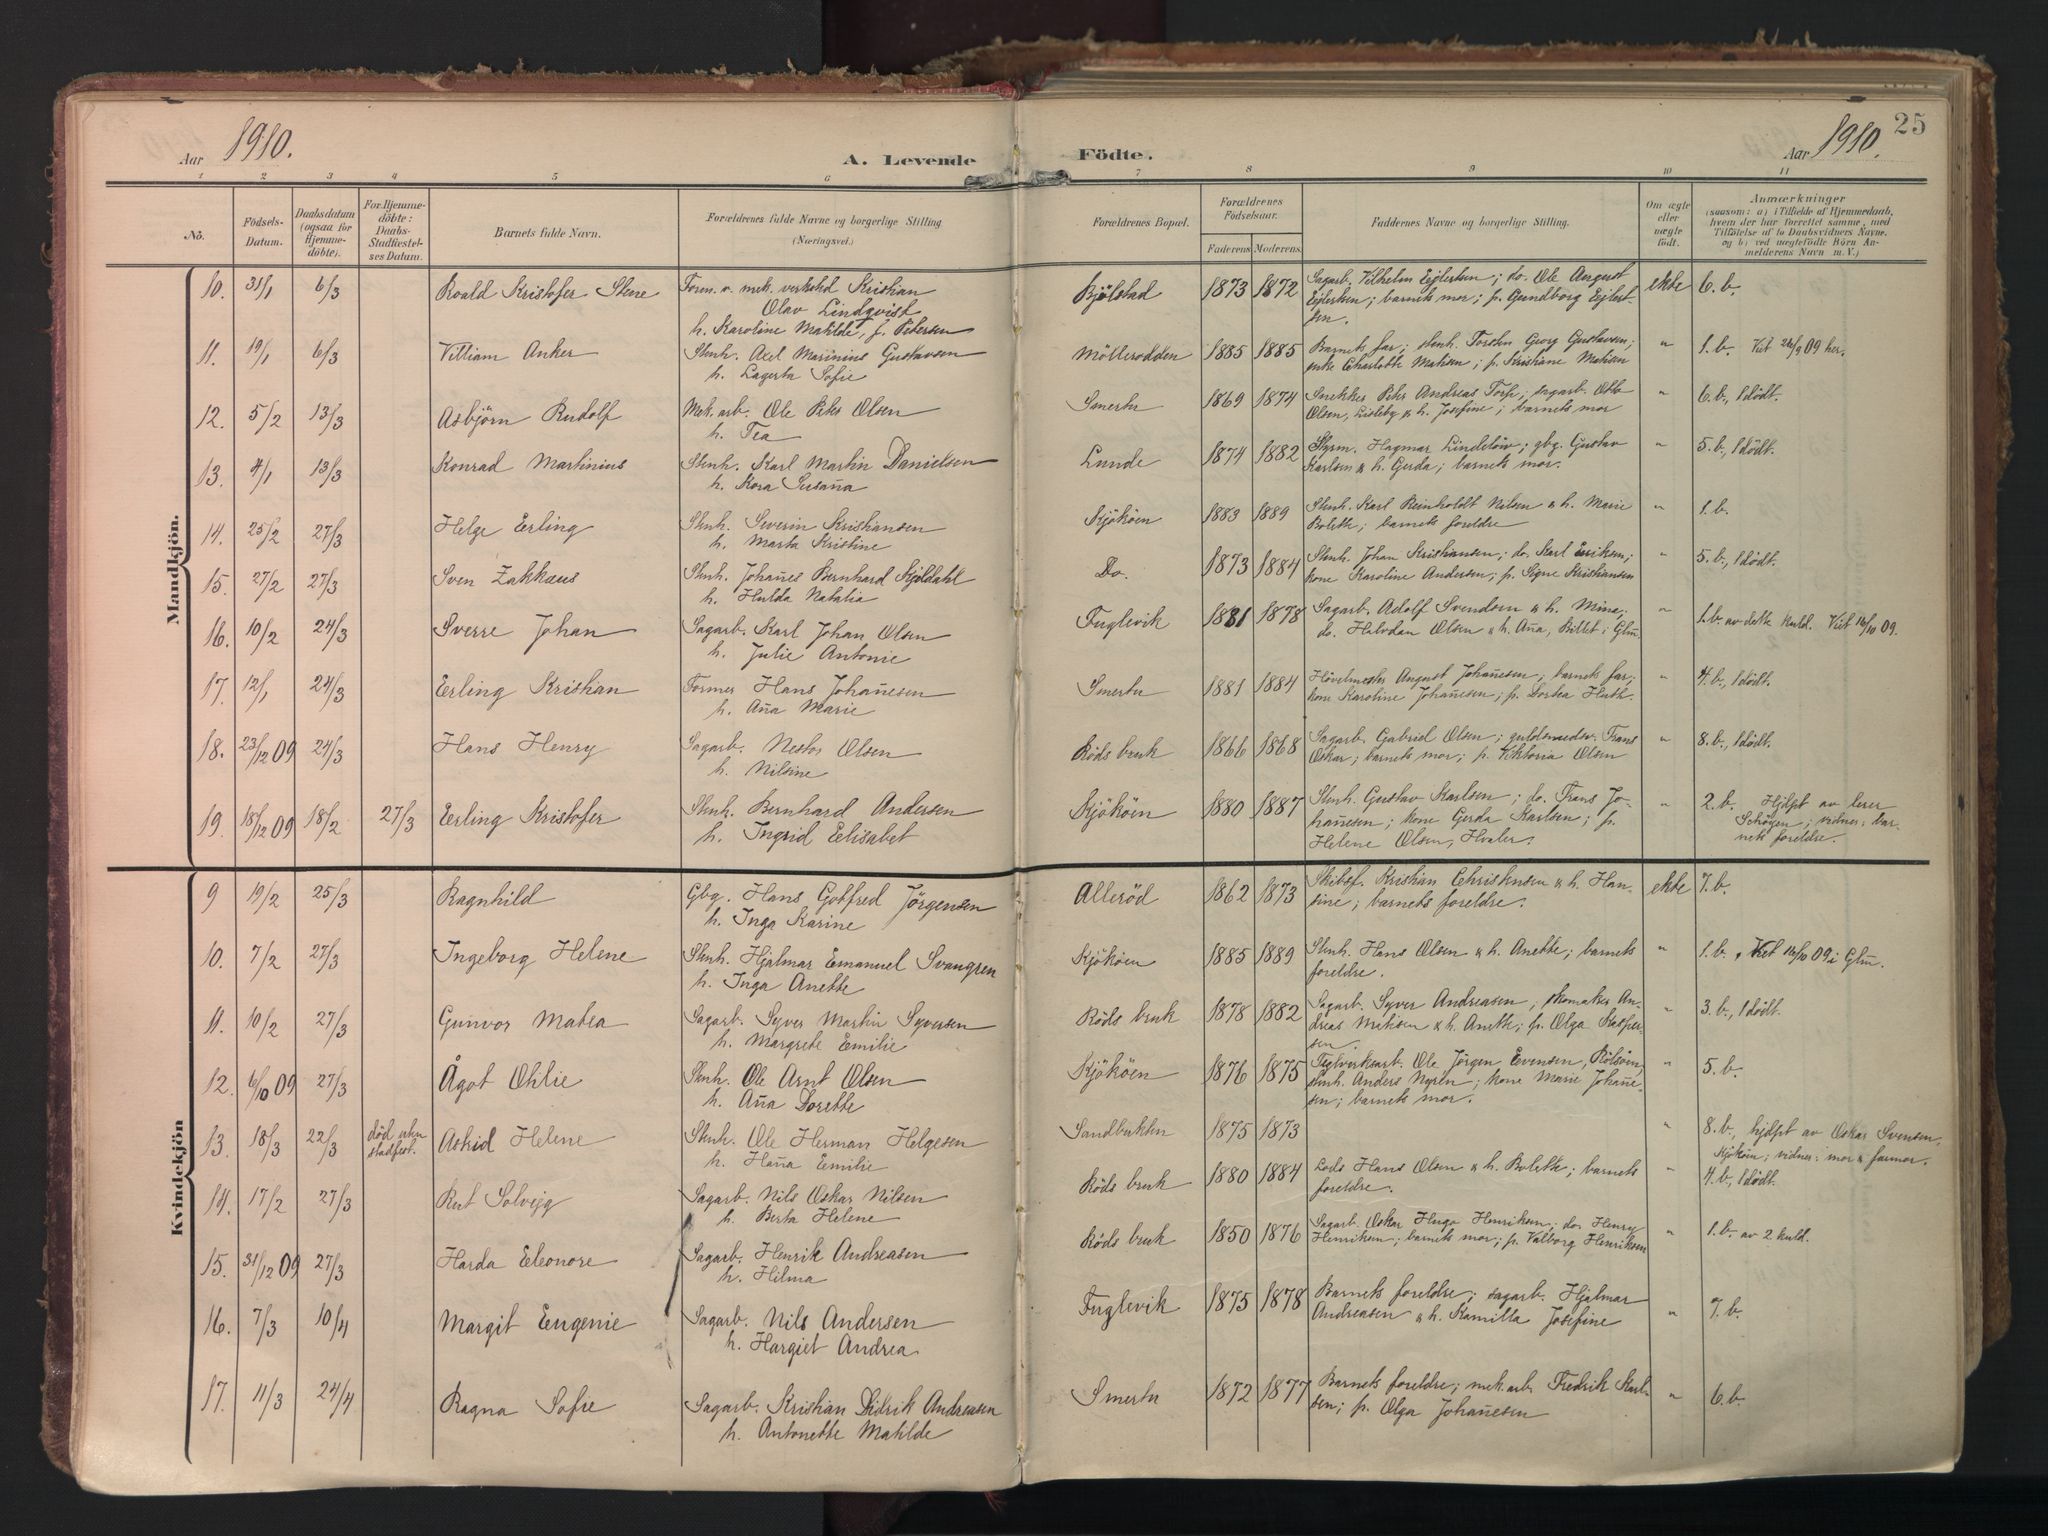 25
Aar 1910.
A. Levende Födte.
Aar 1910.
1 2 3 4 5 6 7 8 9 10 11
No.
Födsels-Datum.
Daabsdatum (ogsaa for Hjemmedöbte).
For Hjemmedöbte: Daabs-Stadfæstelses Datum.
Barnets fulde Navn.
Forældrenes fulde Navne og borgerlige Stilling (Næringsvei.)
Forældrenes Bopæl.
Forældrenes Födselsaar.
Faderens. Moderens.
Faddernes Navne og borgerlige Stilling.
Om ægte eller uægte født.
Anmærkninger
(saasom: a) i Tilfælde af Hjemmedaab, hvem der har forrettet samme, med Tilföielse af to Daabsvidners Navne, og b) ved uægtefödte Börn Anmelderens Navn m. V.)
Mandkjön.
10. 31/1 6/3 Roald Kristofer Stene Form. v. mek. verksted Kristian Olav Lindqvist h. Karoline Matilde, f. Petersen Bjölstad 1873 1872 Sagarb. Vilhelm Ejlertsen; do. Ole August Ejlertsen; barnets mor; p. Gundborg Ejlertsen. ekte 6. b.
11. 19/1 6/3 William Anker Stenh. Axel Marinius Gustavsen h. Lagerta Sofie Möllerodden 1885 1885 Barnets far; stenh. Torsten Georg Gustavsen; enke Charlotte Matisen; p. Kristiane Matisen " 1. b. Viet 26/9 09 her.
12. 5/2 13/3 Asbjörn Rudolf Mek. arb. Ole Peter Olsen h. Tea Smertu 1869 1874 Snekker Peter Andreas Torp; sagarb. Otto Olsen, Lisleby & h. Josefine; barnets mor " 6. b., 1 dödt.
13. 4/1 13/3 Konrad Martinius Stenh. Karl Martin Danielsen h. Kora Susaña Lunde 1874 1882 Styrm. Hagmar Lindelöw; gbg. Gustav Karlsen & h. Gerda; barnets mor. " 5. b., 1 dödt.
14. 25/2 27/3 Helge Erling Stenh. Severin Kristiansen h. Marta Kristine Kjököen 1883 1889 Stenh. Karl Reinholdt Nilsen & h. Marie Bolette; barnets foreldre " 1. b.
15. 27/2 27/3 Sven Zakkæus Stenh. Johañes Bernhard Kjöldahl h. Hulda Natalia Do. 1873 1884 Stenh. Johan Kristiansen; do. Karl Eriksen; kone Karoline Andersen; p. Signe Kristiansen " 5. b., 1 dödt.
16. 10/2 24/3 Sverre Johan Sagarb. Karl Johan Olsen h. Julie Antonie Fuglevik 1881 1878 Sagarb. Adolf Svendsen & h. Mina; do. Halvdan Olsen & h. Aña, Billet i Glm. " 1. b. av dette kuld. Viet 16/10 09.
17. 12/1 24/3 Erling Kristian Former Hans Johañesen h. Aña Marie Smertu 1881 1884 Hövelmester August Johañesen; barnets far; kone Karoline Johañesen; p. Dortea Huth. " 4. b., 1 dödt.
18. 23/12 09 24/3 Hans Henry Sagarb. Nestor Olsen h. Nilsine Röds bruk 1866 1868 Sagarb. Gabriel Olsen; guldsmedsv. Frans Oskar; barnets mor; p. Viktoria Olsen " 8. b., 1 dödt.
19. 18/12 09 18/2 27/3 Erling Kristofer Stenh. Bernhard Andersen h. Ingrid Elisabet Kjököen 1880 1887 Stenh. Gustav Karlsen; do. Frans Johañesen; kone Gerda Karlsen; p. Helene Olsen, Hvaler. " 2. b. Hjdpt av lærer Schøyen; vidner: barnets foreldre.
Kvindekjön
9 19/2 25/3 Ragnhild Gbg. Hans Gotfred Jörgensen h. Inga Karine Alleröd 1862 1873 Skibsf. Kristian Christensen & h. Hansine; barnets foreldre. ekte 7. b.
10. 7/2 27/3 Ingeborg Helene Stenh. Hjalmar Emanuel Svangren h. Inga Anette Kjököen 1885 1889 Stenh. Hans Olsen & h. Anette; barnets foreldre. " 1. b., Viet 16/10 09 i Glm.
11. 10/2 27/3 Gunvor Matea Sagarb. Syver Martin Syversen h. Margrete Emilie Röds bruk 1878 1882 Sagarb. Syver Andreasen; skomaker Andreas Matisen & h. Anette; p. Olga Kaspersen. " 3. b., 1 dödt.
12. 6/10 09 27/3 Ågot Ohlie Stenh. Ole Arnt Olsen h. Aña Dorette Kjököen 1876 1875 Teglverksarb. Ole Jörgen Evensen, Rolsöen; stenh. Anders Nyren; kone Marie Johañesen; barnets mor. " 5. b.
13. 18/3 22/3 död uten stadfest. Astrid Helene Stenh. Ole Herman Helgesen h. Haña Emilie Sandbukten 1875 1873 " 8. b., hjdpt av Oskar Svensen, Kjököen; vidner: mor & farmor.
14. 17/2 27/3 Rut Solvejg Sagarb. Nils Oskar Nilsen h. Berta Helene Röds bruk 1880 1884 Lods Hans Olsen & h. Bolette; barnets foreldre. " 4. b., 1 dödt.
15. 31/12 09 27/3 Harda Eleonore Sagarb. Henrik Andreasen h. Hilma Röds bruk 1850 1876 Sagarb. Oskar Hugo Henriksen; do. Henry Henriksen; barnets mor; p. Valborg Henriksen " 1. b. av 2 kuld.
16. 7/3 10/4 Margit Eugenie Sagarb. Nils Andersen h. Hargiet Andrea Fuglevik 1875 1878 Barnets foreldre; sagarb. Hjalmar Andreasen & h. Kamilla Josefine " 7. b.
17. 11/3 24/4 Ragna Sofie Sagarb. Kristian Didrik Andreasen h. Antonette Matilde Smertu 1872 1877 Barnets foreldre; mek. arb. Fredrik Karlsen; p. Olga Johañesen " 6. b.